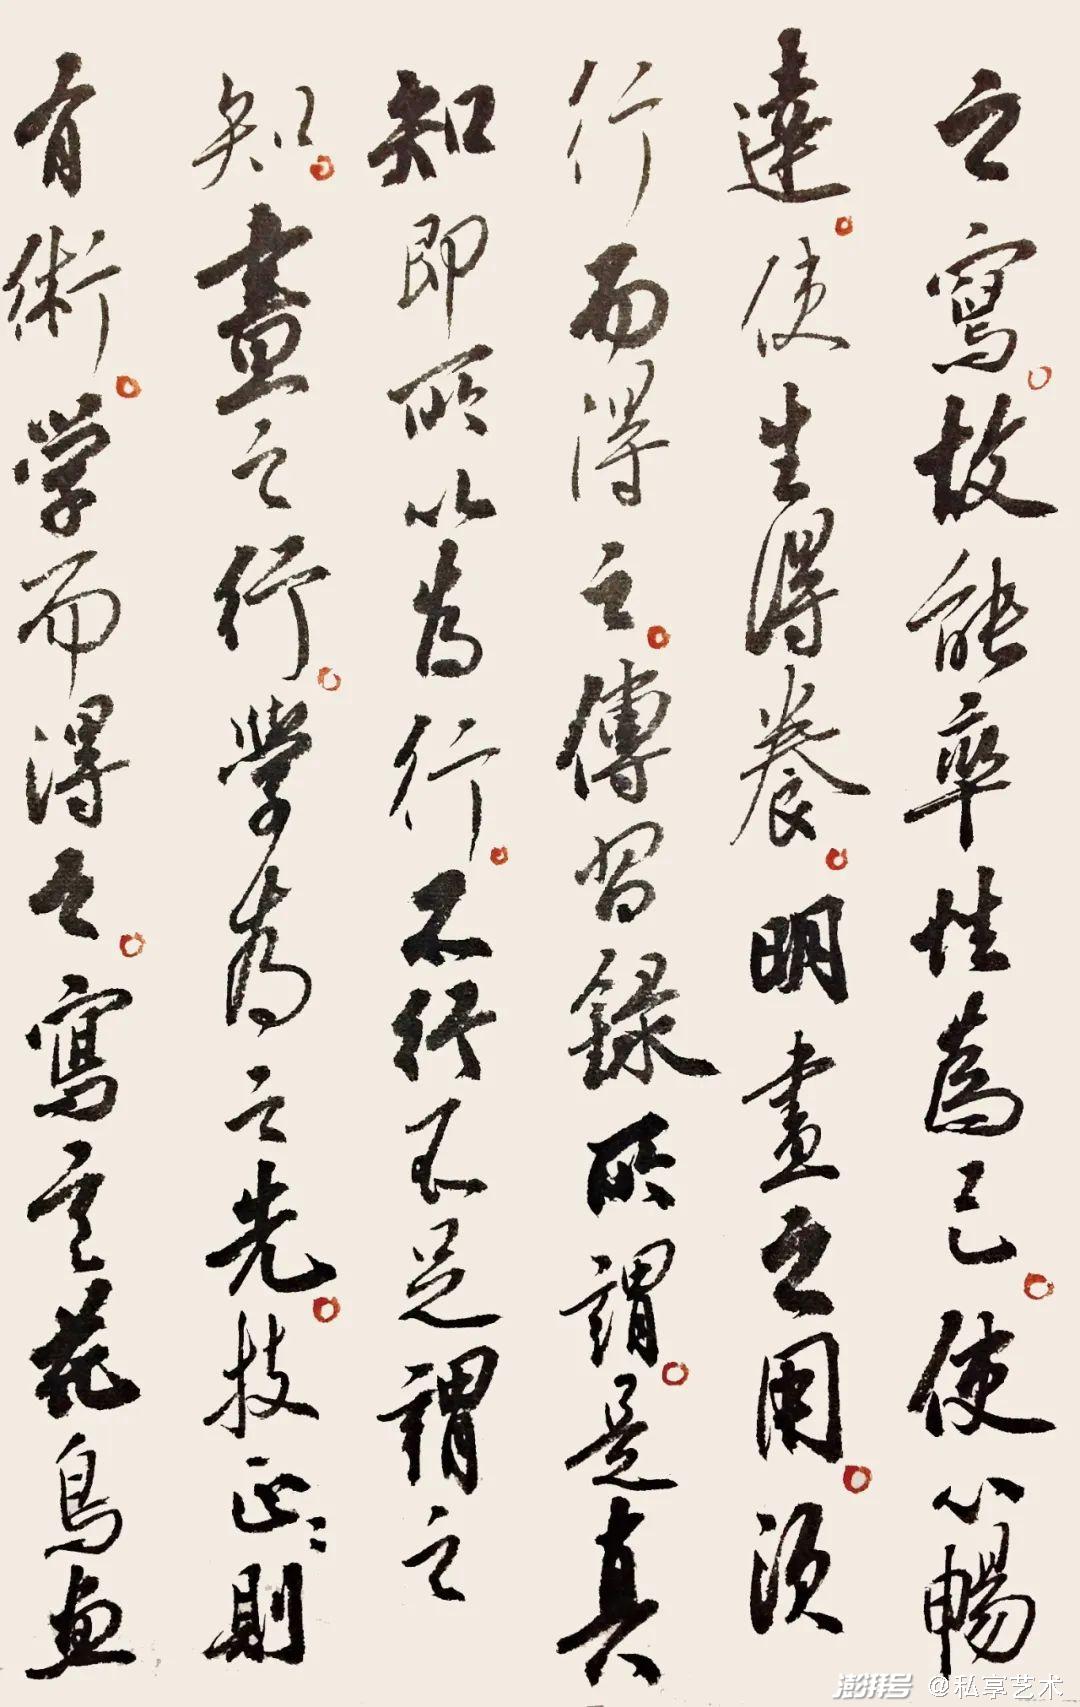 之寫。故能率性為己。使心暢
達。使生得養。明畫之用。須
行而得之。傳習錄所謂。是真
知即所以為行。不行不足謂之
知。畫之行。學為之先。技正正則
有術。學而得之。寫意花鳥畫
澎湃号 @私享艺术